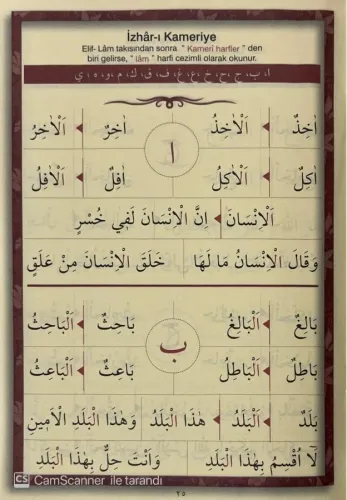 İzhâr-ı Kameriye
Elif- Lâm takısından sonra " Kamerî harfler " den
biri gelirse, " lâm " harfi cezimli olarak okunur.
ا، ب، ج، ح، خ، ع، غ، ف، ق، ك، م، و، ه، ي
اٰخِذٌ اَلْاٰخِذُ اٰخِرٌ اَلْاٰخِرُ
ا
اٰكِلٌ اَلْاٰكِلُ اٰفِلٌ اَلْاٰفِلُ
اَلْاِنْسَانَ اِنَّ الْاِنْسَانَ لَفٖي خُسْرٍ
وَقَالَ الْاِنْسَانُ مَا لَهَا خَلَقَ الْاِنْسَانَ مِنْ عَلَقٍ
بَالِغٌ اَلْبَالِغُ بَاحِثٌ اَلْبَاحِثُ
ب
بَاطِلٌ اَلْبَاطِلُ بَاعِثٌ اَلْبَاعِثُ
بَلَدٌ اَلْبَلَدُ هٰذَا الْبَلَدُ وَهٰذَا الْبَلَدِ الْاَمٖينِ
لَٓا اُقْسِمُ بِهٰذَا الْبَلَدِ وَاَنْتَ حِلٌّ بِهٰذَا الْبَلَدِ
CS CamScanner ile tarandı
٢٥